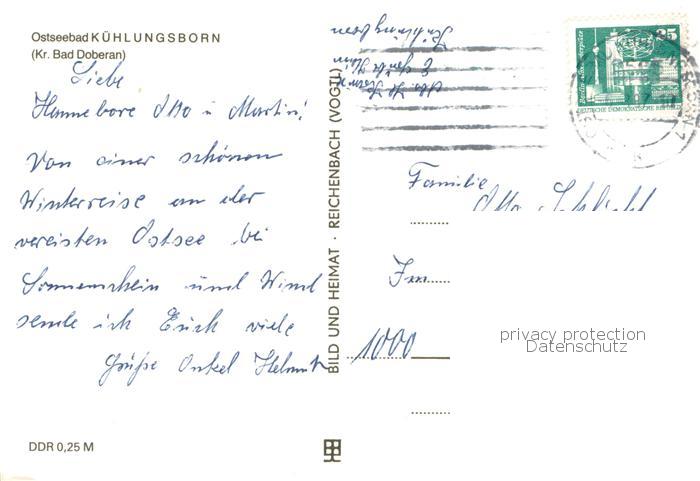 Ostseebad KÜHLUNGSBORN
(Kr. Bad Doberan)
Liebe
Hannelore Otto u Martin!
Von einer schönen
Winterreise an der
vereisten Ostsee bei
Sonnenschein und Wind
sende ich Euch viele
Grüße Onkel Helmut
DDR 0,25 M
BILD UND HEIMAT · REICHENBACH (VOGTL)
Kühlungsborn
35
DEUTSCHE DEMOKRATISCHE
Familie
Otto
1000
privacy protection
Datenschutz